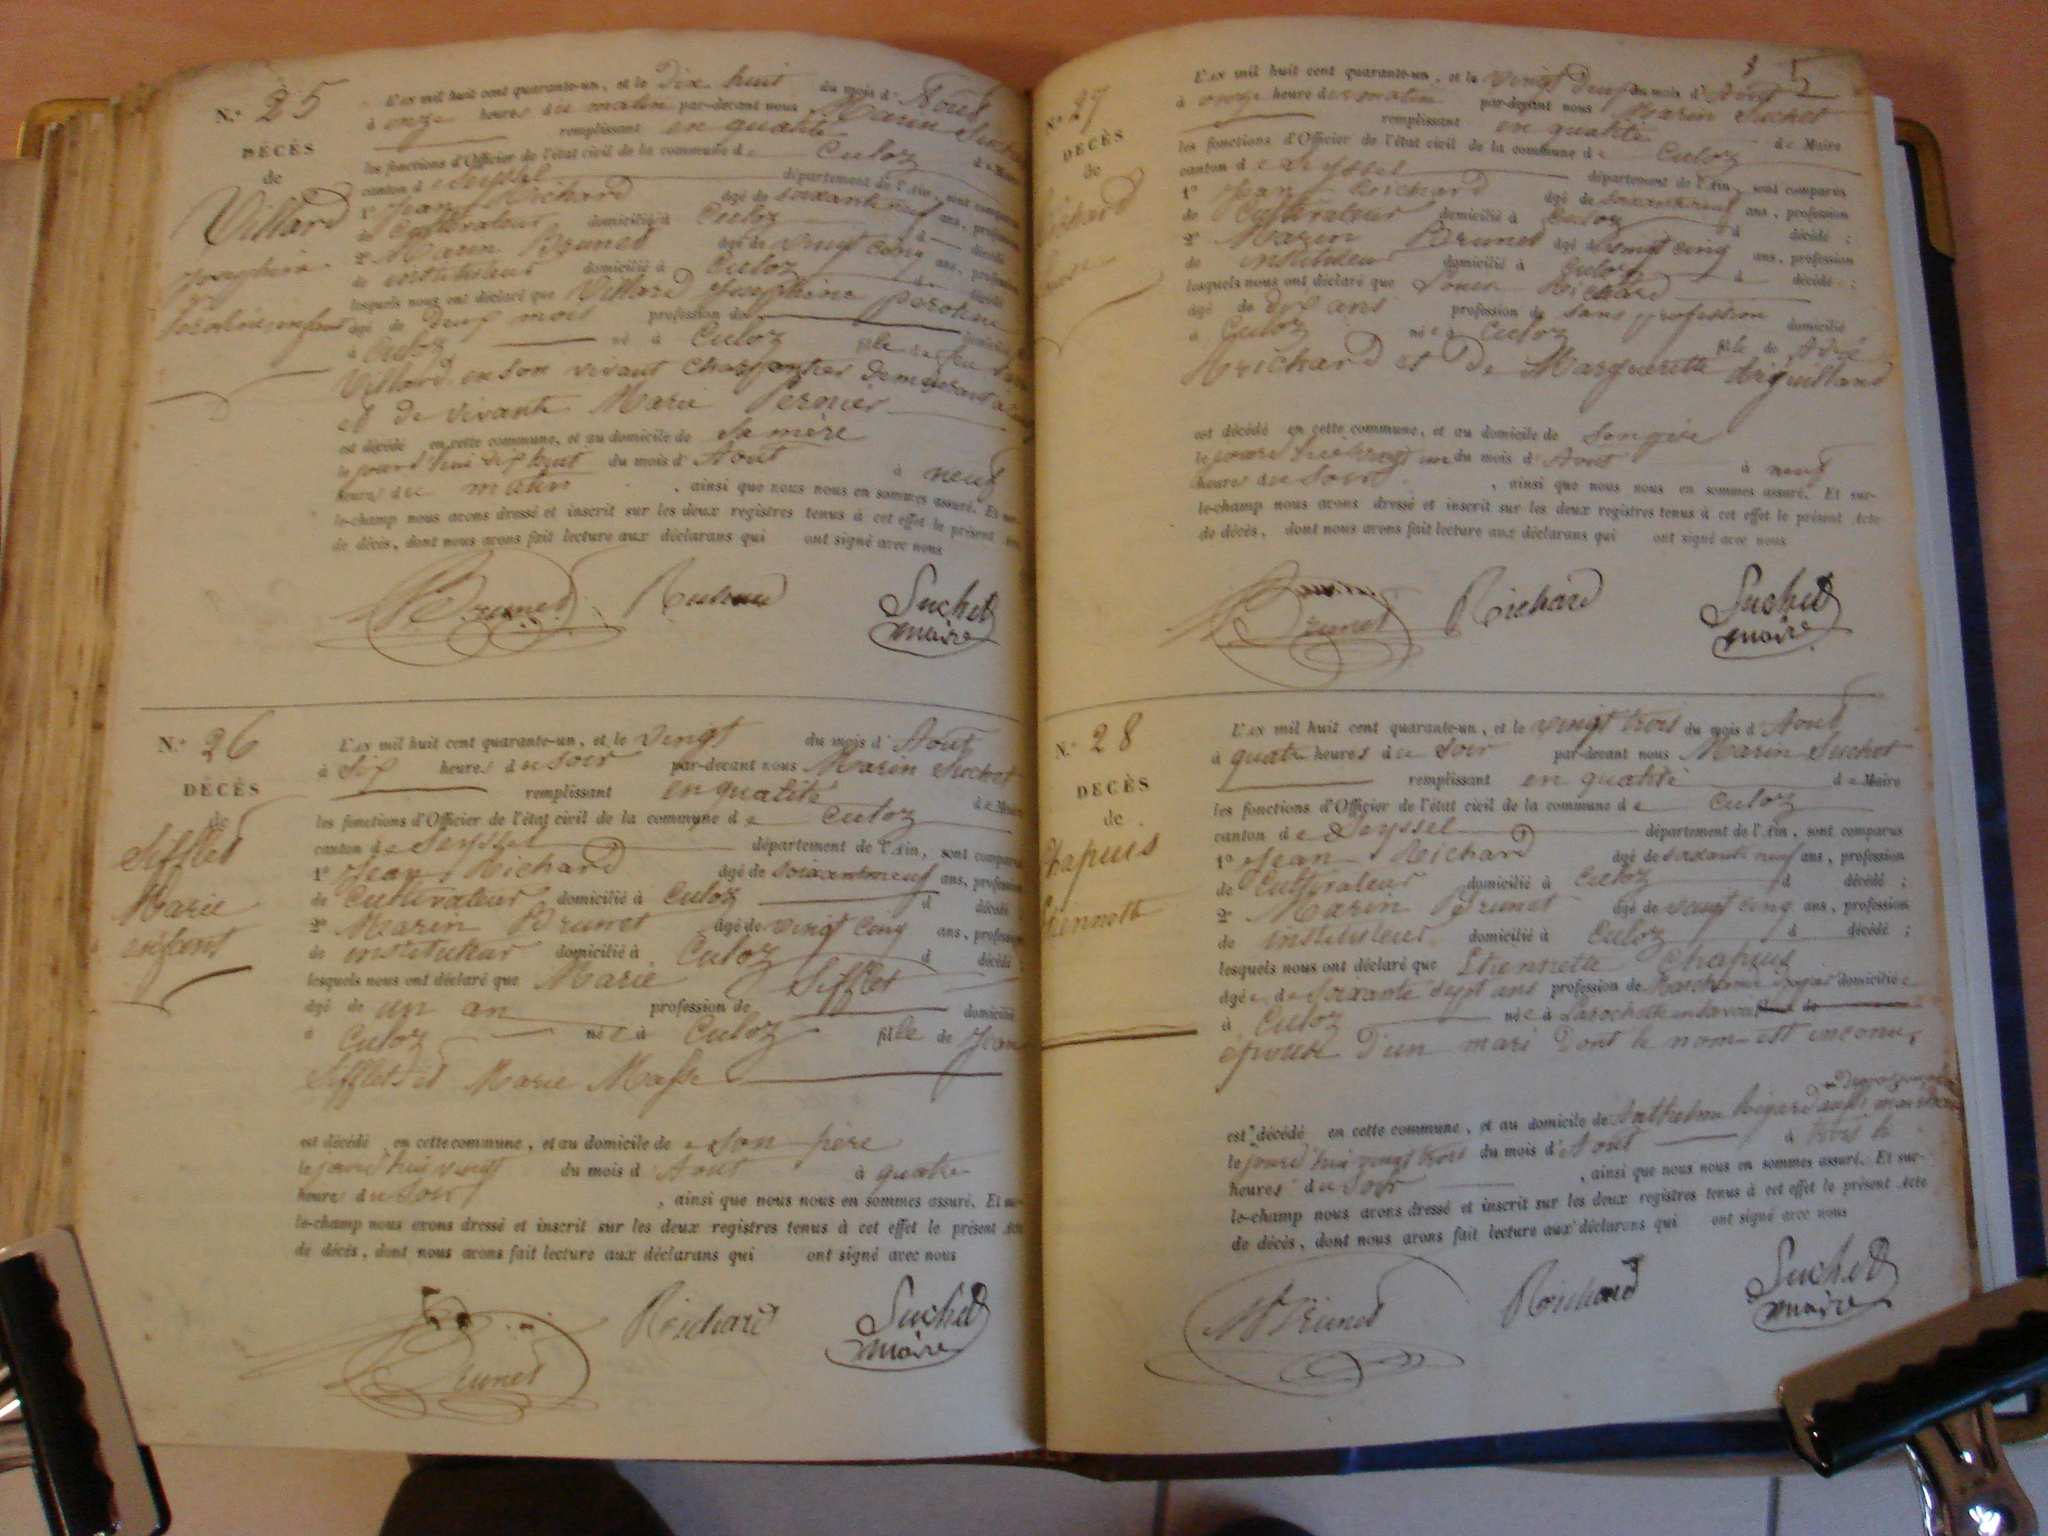 N.° 25
DÉCÈS
de
Villard
Josephine
enfant
L'AN mil huit cent quarante-un, et le Dix huit du mois d'Aout
à onze heures du matin par-devant nous Marin Suchet
remplissant en qualité de Maire
les fonctions d'Officier de l'état civil de la commune de Culoz
canton de Seyssel département de l'Ain, sont comparus
1° Jean Richard âgé de soixante neuf ans, profession
de Cultivateur domicilié à Culoz d décédé
2° Marin Brunet âgé de vingt cinq ans, profession
de instituteur domicilié à Culoz d décédé
lesquels nous ont déclaré que Villard Josephine Peroline
âgé de Deux mois profession de domicilié
à Culoz né à Culoz fille de feu
Villard en son vivant charpentier demeurant à
et de vivante Marie Pernier
est décédé en cette commune, et au domicile de Sa mère
le jourd'hui dix huit du mois d'Aout à neuf
heures du matin, ainsi que nous nous en sommes assuré. Et sur-
le-champ nous avons dressé et inscrit sur les deux registres tenus à cet effet le présent Acte
de décès, dont nous avons fait lecture aux déclarans qui ont signé avec nous
Brunet Richard Suchet
maire
N.° 26
DÉCÈS
de
Sifflet
Marie
enfant
L'AN mil huit cent quarante-un, et le vingt du mois d'Aout
à Six heures du soir par-devant nous Marin Suchet
remplissant en qualité de Maire
les fonctions d'Officier de l'état civil de la commune de Culoz
canton de Seyssel département de l'Ain, sont comparus
1° Jean Richard âgé de soixante neuf ans, profession
de Cultivateur domicilié à Culoz d décédé
2° Marin Brunet âgé de vingt cinq ans, profession
de instituteur domicilié à Culoz d décédé
lesquels nous ont déclaré que Marie Sifflet
âgé de un an profession de domicilié
à Culoz née à Culoz fille de Jean
Sifflet et Marie Masse
est décédé en cette commune, et au domicile de Son père
le jourd'hui vingt du mois d'Aout à quatre
heures du Soir, ainsi que nous nous en sommes assuré. Et sur-
le-champ nous avons dressé et inscrit sur les deux registres tenus à cet effet le présent Acte
de décès, dont nous avons fait lecture aux déclarans qui ont signé avec nous
Brunet Richard Suchet
maire
N.° 27
DÉCÈS
de
Richard
L'AN mil huit cent quarante-un, et le vingt Deux du mois d'Aout
à onze heures du matin par-devant nous Marin Suchet
remplissant en qualité de Maire
les fonctions d'Officier de l'état civil de la commune de Culoz
canton de Seyssel département de l'Ain, sont comparus
1° Jean Richard âgé de soixante neuf ans, profession
de Cultivateur domicilié à Culoz d décédé ;
2° Marin Brunet âgé de vingt cinq ans, profession
de instituteur domicilié à Culoz d décédé ;
lesquels nous ont déclaré que Richard
âgé de dix ans profession de sans profession domicilié
à Culoz née à Culoz fille de
Richard et De Marguerite
est décédé en cette commune, et au domicile de Son père
le jourd'hui vingt un du mois d'Aout à neuf
heures du Soir, ainsi que nous nous en sommes assuré. Et sur-
le-champ nous avons dressé et inscrit sur les deux registres tenus à cet effet le présent Acte
de décès, dont nous avons fait lecture aux déclarans qui ont signé avec nous
Brunet Richard Suchet
maire
N.° 28
DÉCÈS
de
Chapuis
Etiennette
L'AN mil huit cent quarante-un, et le vingt trois du mois d'Aout
à quatre heures du Soir par-devant nous Marin Suchet
remplissant en qualité de Maire
les fonctions d'Officier de l'état civil de la commune de Culoz
canton de Seyssel département de l'Ain, sont comparus
1° Jean Richard âgé de soixante neuf ans, profession
de Cultivateur domicilié à Culoz d décédé ;
2° Marin Brunet âgé de vingt cinq ans, profession
de instituteur domicilié à Culoz d décédé ;
lesquels nous ont déclaré que Etiennette Chapuis
âgée de soixante sept ans profession de Marchande domiciliée
à Culoz née à Larochette en Savoie
épouse D'un mari Dont le nom est inconnu,
est décédé en cette commune, et au domicile de Anthelme Rigard
le jourd'hui vingt trois du mois d'Aout à trois h
heures du Soir, ainsi que nous nous en sommes assuré. Et sur-
le-champ nous avons dressé et inscrit sur les deux registres tenus à cet effet le présent Acte
de décès, dont nous avons fait lecture aux déclarans qui ont signé avec nous
Mn Brunet Richard Suchet
maire